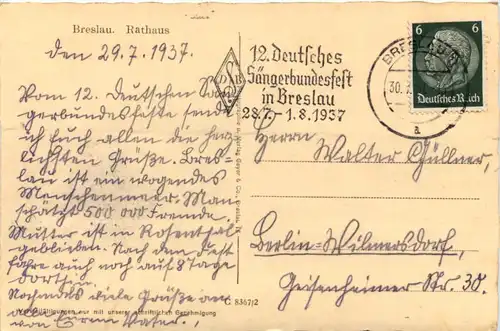 Breslau. Rathaus
den 29.7.1937.
Vom 12. Deutschen Sän-
gerbundesfeste sende
ich Euch allen die herz-
lichsten Grüße. Bres-
lau ist ein wogendes
Menschenmeer. Man
schätzt 500 000 Fremde.
Mutter ist in Rosenthal
geblieben. Nach dem Fest
fahre auch noch auf 8 Tage
dorthin.
Nochmals viele Grüße an
von Eurem Vater.
Vervielfältigungen nur mit unserer schriftlichen Genehmigung
C 8367/2
DSB
12. Deutsches
Sängerbundesfest
in Breslau
28.7. - 1.8.1937
BRESLAU
30.
a
6 6
Deutsches Reich
Herrn Walter Güllner,
Berlin-Wilmersdorf,
Geisenheimer Str. 30.